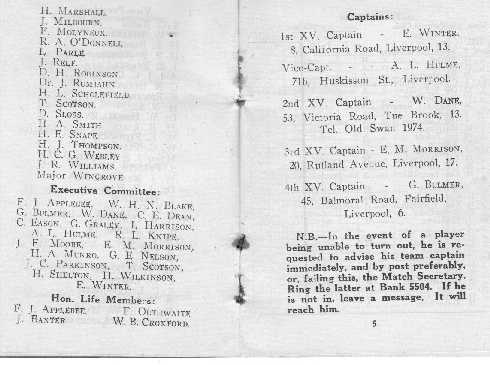 H. MARSHALL,
J. MILBOURN,
F. MOLYNEUX,
R. A. O'DONNELL,
L. PARLE,
J. RELF,
D. H. ROBINSON,
Dr. J. RUMJAHN
H. L. SCHOLEFIELD,
T. SCOTSON,
D. SLOSS,
H. A. SMITH
H. E. SNAPE,
H. J. THOMPSON,
H. C. G. WEBLEY
J. R. WILLIAMS
Major WINGROVE
Executive Committee:
F. J. APPLEBEE, W. H. N. BLAKE,
G. BULMER, W. DANE, C. E. DEAN,
C. EASON, G. GRALEY, J. HARRISON,
A. L. HULME, R. L. KNIPE,
J. F. MOORE, E. M. MORRISON,
H. A. MUNRO, G. E. NELSON,
J. C. PARKINSON, T. SCOTSON,
H. SHELTON, H. WILKINSON,
E. WINTER.
Hon. Life Members:
F. J. APPLEBEE, F. OUTHWAITE
J. BAXTER W. B. CROXFORD.
Captains:
1st XV. Captain - E. WINTER,
8, California Road, Liverpool, 13.
Vice-Capt. - A. L. HULME,
71b, Huskisson St., Liverpool.
2nd XV Captain - W. DANE,
53, Victoria Road, Tue Brook, 13.
Tel. Old Swan 1974.
3rd XV. Captain - E. M. MORRISON,
20, Rutland Avenue, Liverpool, 17.
4th XV. Captain - G. BULMER,
45, Balmoral Road, Fairfield,
Liverpool, 6.
N.B.—In the event of a player
being unable to turn out, he is re-
quested to advise his team captain
immediately, and by post preferably,
or, failing this, the Match Secretary.
Ring the latter at Bank 5504. If he
is not in, leave a message. It will
reach him.
5